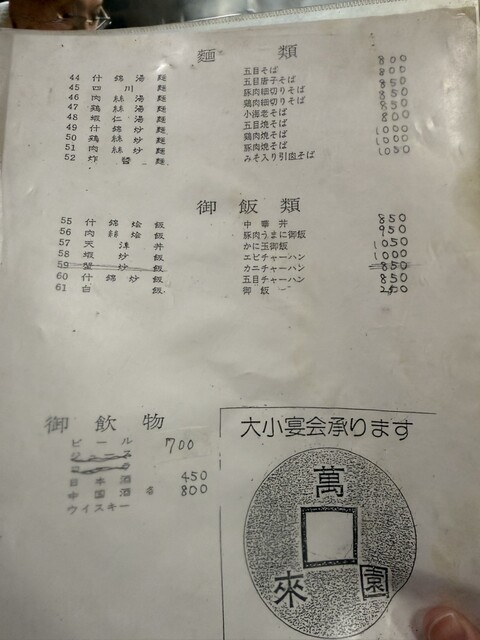 麵類
44 什錦湯麵 五目そば 800
45 四川麵 五目唐子そば 800
46 肉絲湯麵 豚肉細切りそば 850
47 鷄絲湯麵 鶏肉細切りそば 850
48 蝦仁湯麵 小海老そば 850
49 什錦炒麵 五目焼そば 800
50 鷄絲炒麵 鶏肉焼そば 1000
51 肉絲炒麵 豚肉焼そば 1000
52 炸醬麵 みそ入り引肉そば 1050
御飯類
55 什錦燴飯 中華丼 850
56 肉絲燴飯 豚肉うまに御飯 950
57 天津丼 かに玉御飯 1050
58 蝦炒飯 エビチャーハン 1000
59 蟹炒飯 カニチャーハン 850
60 什錦炒飯 五目チャーハン 850
61 白飯 御飯 250
御飲物
ビール 700
ジュース
コーラ
日本酒 450
中国酒 各 800
ウイスキー
大小宴会承ります
萬
來 園